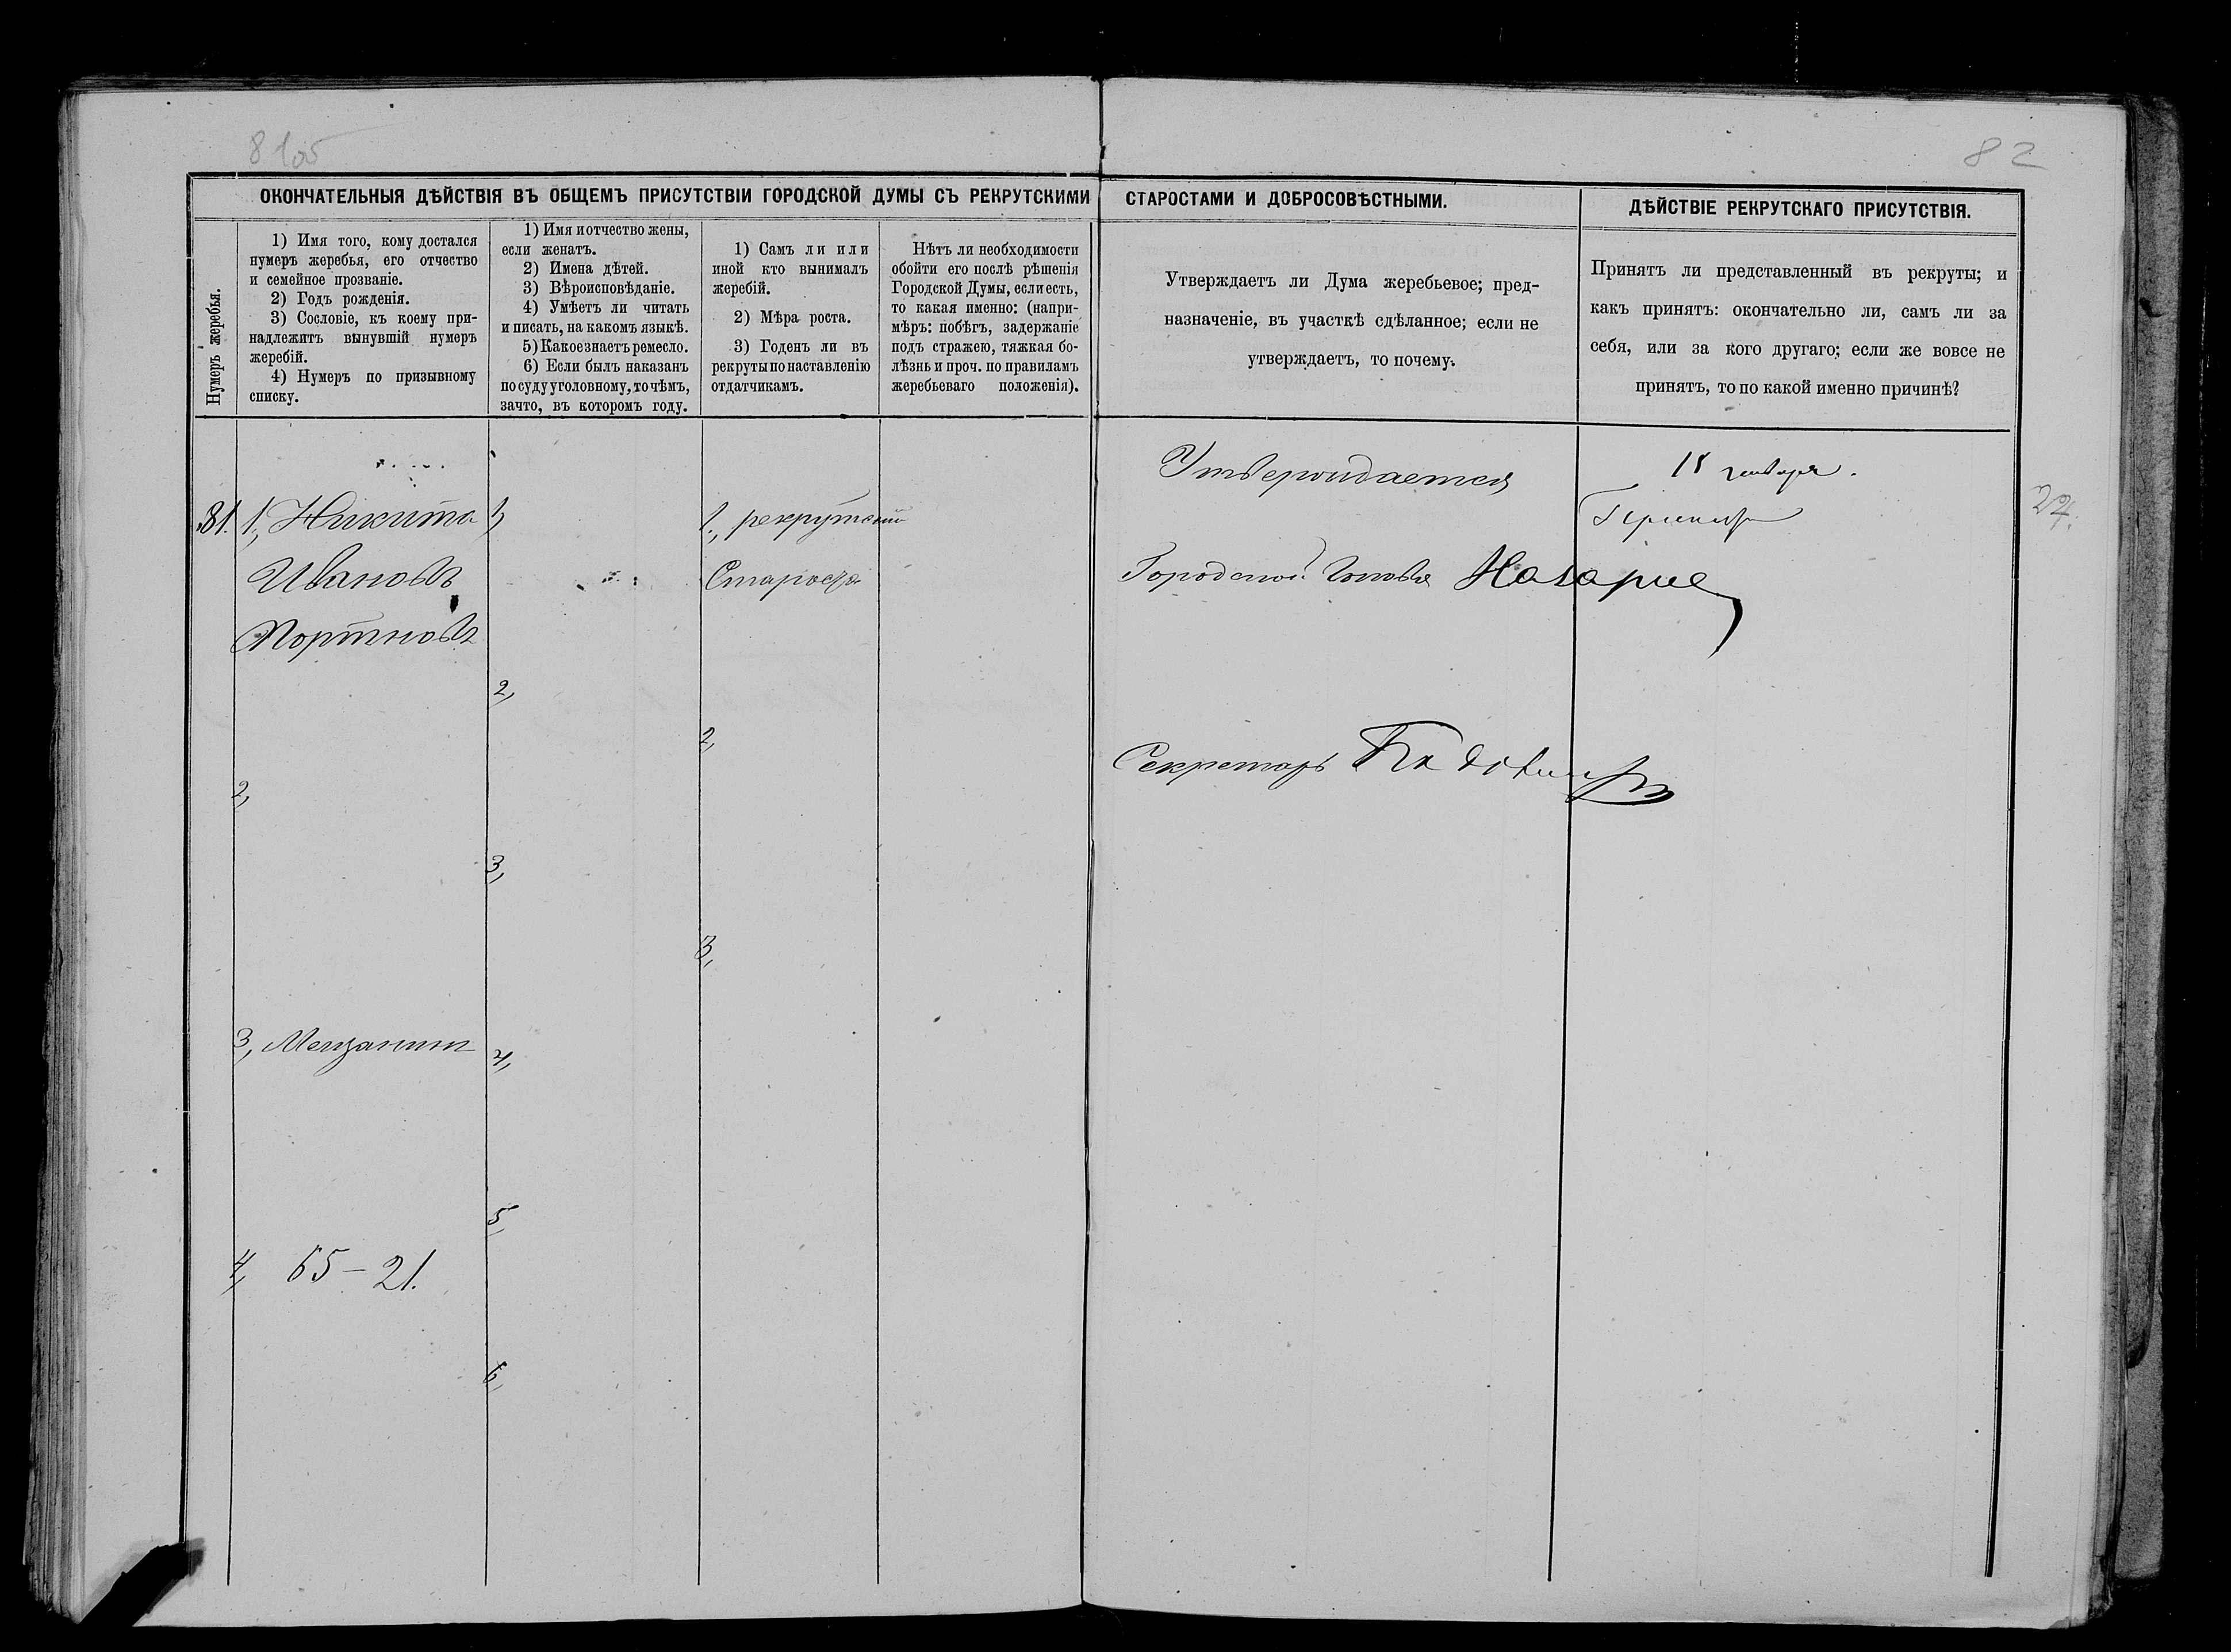 8105
82
ОКОНЧАТЕЛЬНЫЯ ДѢЙСТВІЯ ВЪ ОБЩЕМЪ ПРИСУТСТВІИ ГОРОДСКОЙ ДУМЫ СЪ РЕКРУТСКИМИ СТАРОСТАМИ И ДОБРОСОВѢСТНЫМИ.
ДѢЙСТВІЕ РЕКРУТСКАГО ПРИСУТСТВІЯ.
Нумеръ жеребья.
1) Имя того, кому достался
нумеръ жеребья, его отчество
и семейное прозваніе.
2) Годъ рожденія.
3) Сословіе, къ коему при-
надлежитъ вынувшій нумеръ
жеребій.
4) Нумеръ по призывному
списку.
1) Имя и отчество жены,
если женатъ.
2) Имена дѣтей.
3) Вѣроисповѣданіе.
4) Умѣетъ ли читать
и писать, на какомъ языкѣ.
5) Какое знаетъ ремесло.
6) Если былъ наказанъ
по суду уголовному, то чѣмъ,
за что, въ которомъ году.
1) Самъ ли или
иной кто вынималъ
жеребій.
2) Мѣра роста.
3) Годенъ ли въ
рекруты по наставленію
отдатчикамъ.
Нѣтъ ли необходимости
обойти его послѣ рѣшенія
Городской Думы, если есть,
то какая именно: (напри-
мѣръ: побѣгъ, задержаніе
подъ стражею, тяжкая бо-
лѣзнь и проч. по правиламъ
жеребьеваго положенія).
Утверждаетъ ли Дума жеребьевое; пред-
назначеніе, въ участкѣ сдѣланное; если не
утверждаетъ, то почему.
Принятъ ли представленный въ рекруты; и
какъ принятъ: окончательно ли, самъ ли за
себя, или за кого другаго; если же вовсе не
принятъ, то по какой именно причинѣ?
81.
1, Никита
Ивановъ
Портновъ
2,
3, Мещанинъ
4, 65-21.
1,
2,
3,
4,
5,
6,
1, рекрутскій
Староста
2,
3,
Утверждается
Городской Голова Назарие
Секретарь
18 января.